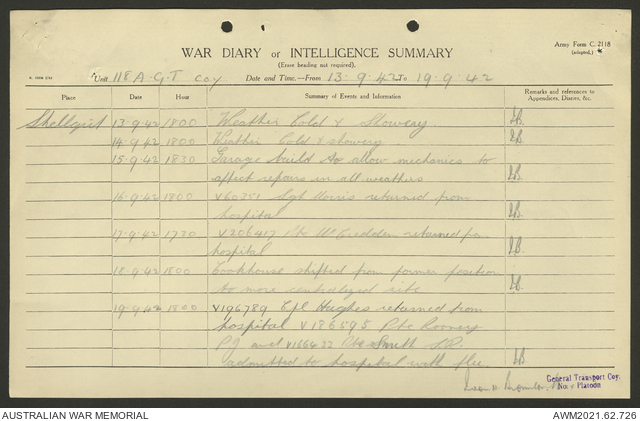 Army Form C. 2118
(adapted.)
WAR DIARY or INTELLIGENCE SUMMARY
(Erase heading not required).
Unit 118 A.G.T Coy Date and Time.—From 13.9.42 To 19.9.42
Place Date Hour Summary of Events and Information Remarks and references to
Appendices, Diaries, &c.
13.9.42 1800 Weather Cold & Showery
14.9.42 1800 Weather Cold & showery
15.9.42 1830 Garage build to allow mechanics to
affect repairs in all weathers
16.9.42 1800 V60351 Sgt Morris returned from
hospital
17.9.42 1730 V206417 Pte McCredden returned
hospital
18.9.42 1800 Cookhouse shifted from former position
to more centralized site
19.9.42 1800 V196789 Cpl Hughes returned from
hospital V186595 Pte Rooney
P.J and Pte Smith
admitted to hospital with flu.
General Transport Coy.
Platoon
AUSTRALIAN WAR MEMORIAL AWM2021.62.726